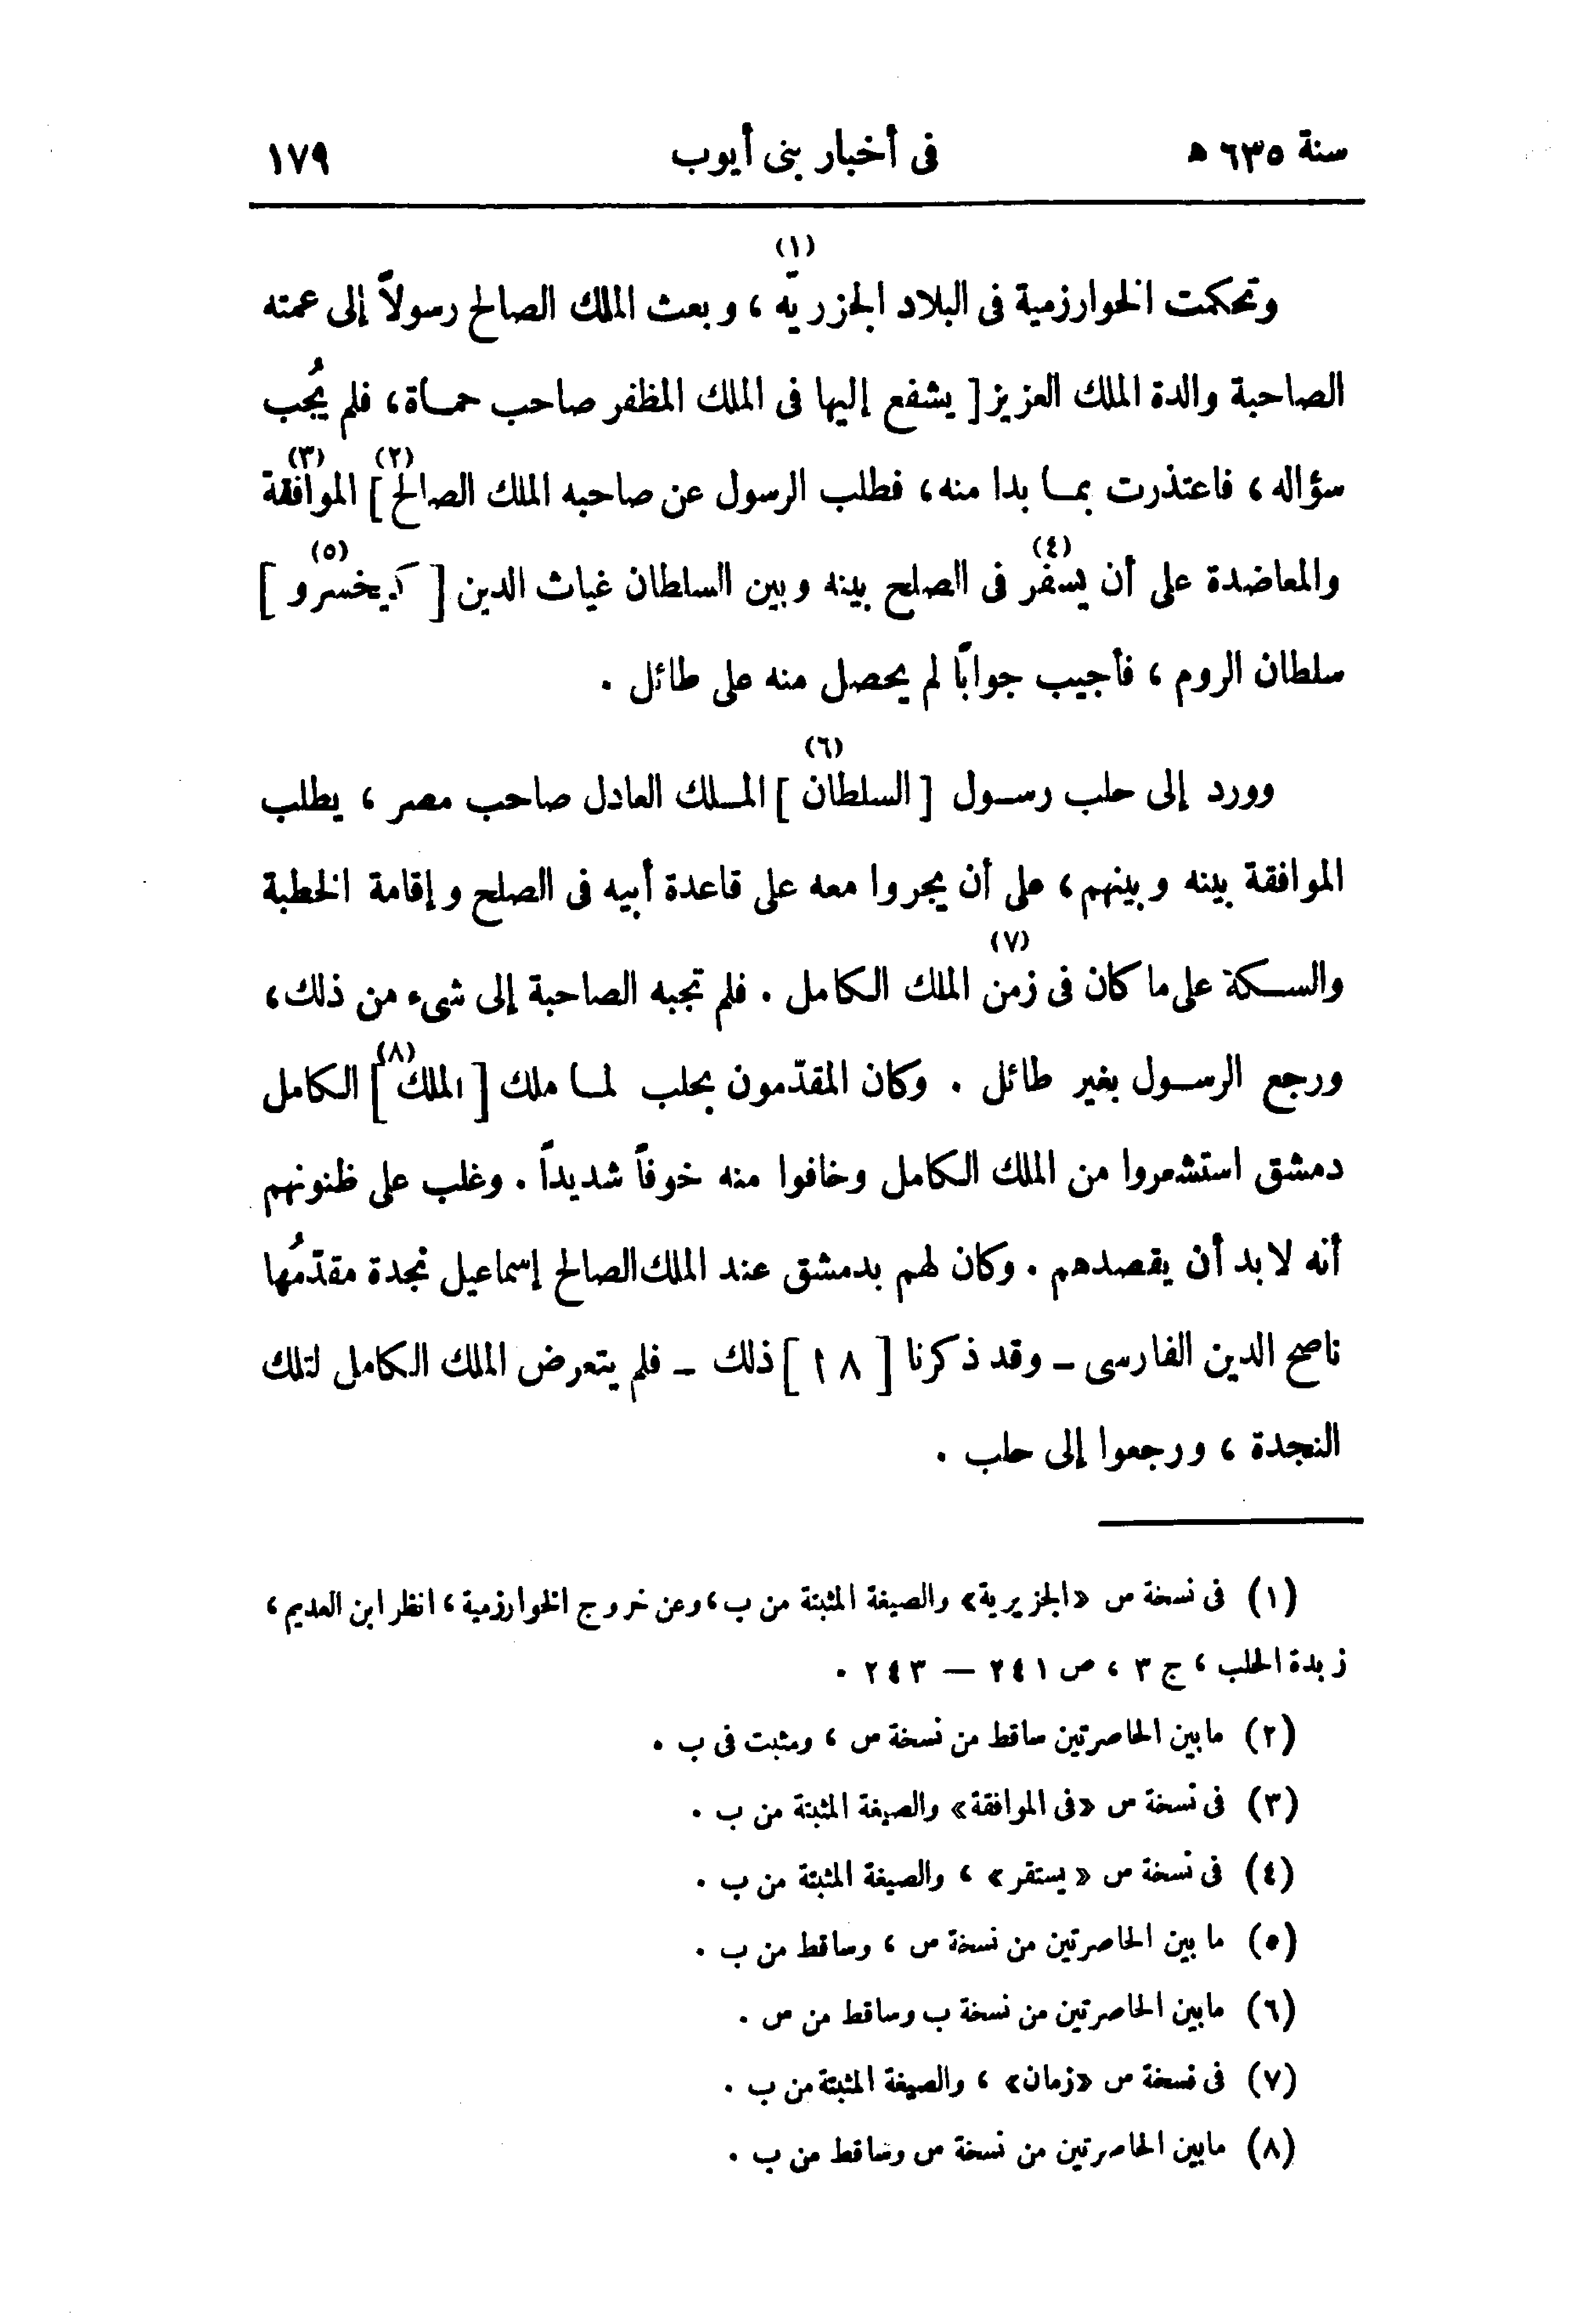 سنة ٦٣٥ هـ فى أخبار بنى أيوب ١٧٩
وتحكمت الخوارزمية فى البلاد الجزريّه (١) ، وبعث الملك الصالح رسولاً إلى عمته
الصاحبة والدة الملك العزيز [ يشفع إليها فى الملك المظفر صاحب حماة ، فلم يُجب
سؤاله ، فاعتذرت بما بدا منه ، فطلب الرسول عن صاحبه الملك الصالح (٢) ] الموافقة (٣)
والمعاضدة على أن يسفر (٤) فى الصلح بينه وبين السلطان غياث الدين [ كيخسرو (٥) ]
سلطان الروم ، فأجيب جوابًا لم يحصل منه على طائل .
وورد إلى حلب رسول [ السلطان (٦) ] الملك العادل صاحب مصر ، يطلب
الموافقة بينه وبينهم ، على أن يجروا معه على قاعدة أبيه فى الصلح وإقامة الخطبة
والسكة على ما كان فى زمن (٧) الملك الكامل . فلم تجبه الصاحبة إلى شىء من ذلك ،
ورجع الرسول بغير طائل . وكان المقدّمون بحلب لما ملك [ الملك (٨) ] الكامل
دمشق استشعروا من الملك الكامل وخافوا منه خوفاً شديداً . وغلب على ظنونهم
أنه لا بد أن يقصدهم . وكان لهم بدمشق عند الملك الصالح إسماعيل نجدة مقدّمُها
ناصح الدين الفارسى – وقد ذكرنا [ ٨ ا ] ذلك – فلم يتعرض الملك الكامل لتلك
النجدة ، ورجعوا إلى حلب .
(١) فى نسخة س «الجزيرية» والصيغة المثبتة من ب ، وعن خروج الخوارزمية ، انظر ابن العديم ،
زبدة الحلب ، ج ٣ ، ص ٢٤١ — ٢٤٣ .
(٢) مابين الحاصرتين ساقط من نسخة س ، ومثبت فى ب .
(٣) فى نسخة س «فى الموافقة» والصيغة المثبتة من ب .
(٤) فى نسخة س « يستقر » ، والصيغة المثبتة من ب .
(٥) ما بين الحاصرتين من نسخة س ، وساقط من ب .
(٦) مابين الحاصرتين من نسخة ب وساقط من س .
(٧) فى نسخة س «زمان» ، والصيغة المثبتة من ب .
(٨) مابين الحاصرتين من نسخة س وساقط من ب .